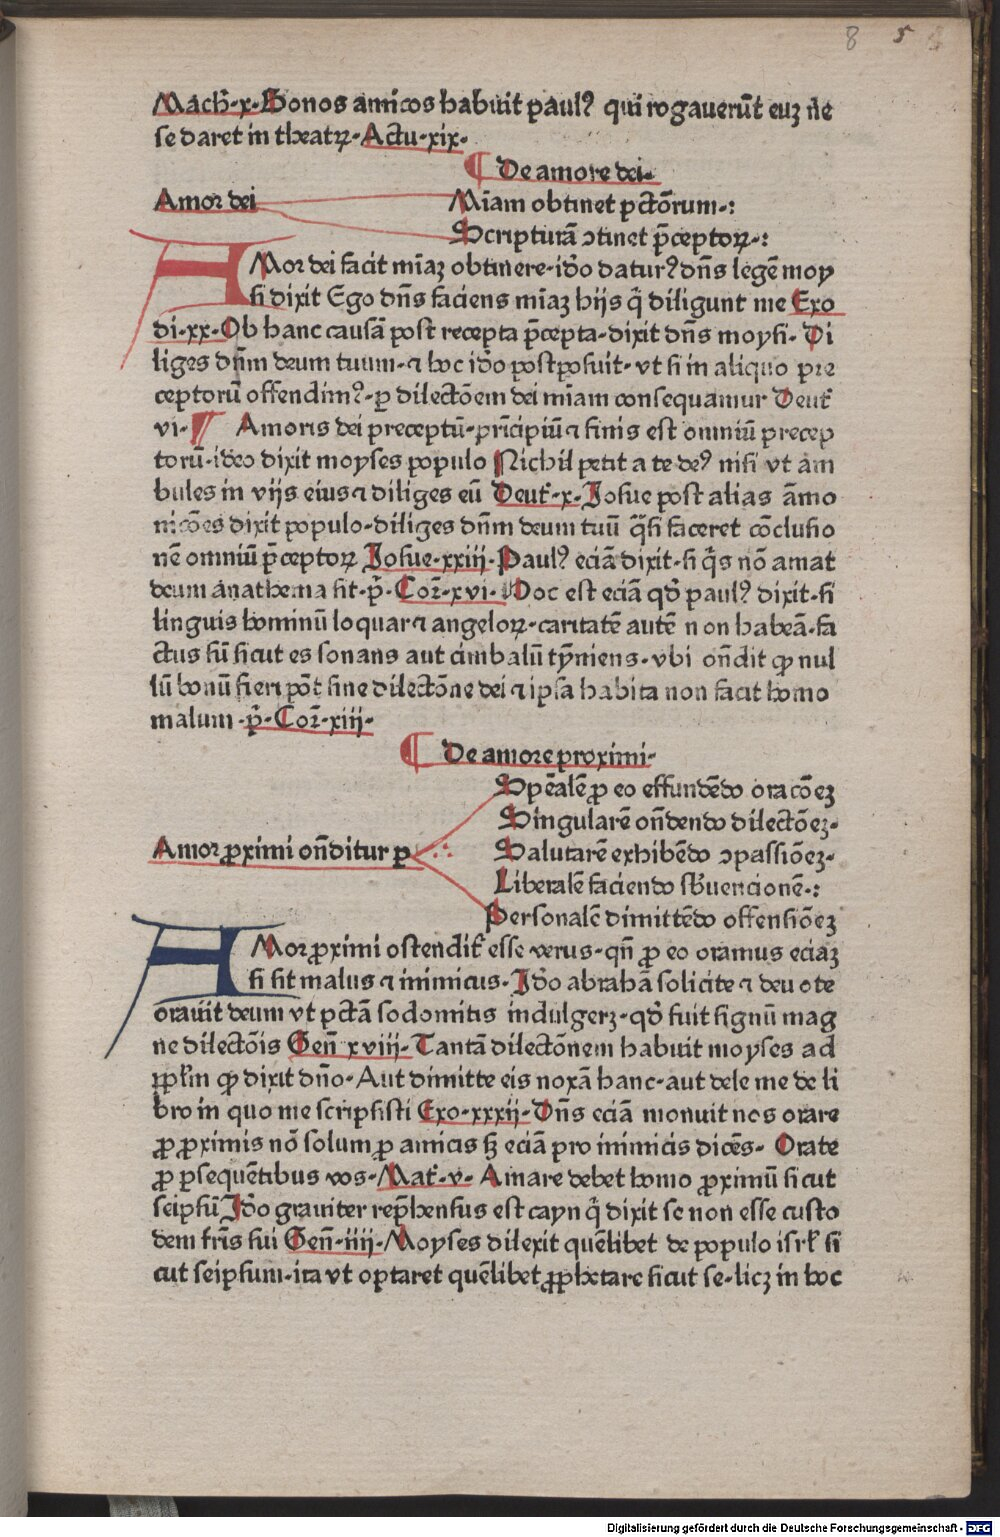 8 5
Mach̄·x·Bonos amicos habuit paulꝰ qui rogauerūt euꝫ ne
se daret in theatꝝ·Actu·xix·
¶ De amore dei·
Amor dei
Miam obtinet pctōrum·:
Scripturā ↄtinet p̄ceptoꝝ·:
AMor dei facit miaꝫ obtinere·iđo daturꝰ dn̄s legē moy
si dixit Ego dn̄s faciens miaꝫ hijs q̄ diligunt me Exo
di·xx·Ob hanc causā post recepta p̄cepta·dixit dn̄s moysi·Di
liges dn̄m deum tuum·⁊ hoc iđo postposuit·vt si in aliquo pre
ceptorū offendimꝰ·p dilectōem dei miam consequamur Deut̄
vi·¶ Amoris dei preceptū·prīcipiū ⁊ finis est omniū precep
torū·ideo dixit moyses populo Nichil petit a te deꝰ nisi vt am
bules in vijs eius ⁊ diliges eū Deut̄·x·Josue post alias āmo
nicōes dixit populo·diliges dn̄m deum tuū q̄si faceret cōclusio
nē omniū p̄ceptoꝝ Josue·xxiij·Paulꝰ eciā dixit·si q̄s nō amat
deum anathema sit·p̄·Cor̄·xvi·Hoc est eciā qđ paulꝰ dixit·si
linguis hominū loquar ⁊ angeloꝝ·caritatē autē non habeā·fa
ctus sū sicut es sonans aut cimbalū tȳniens·vbi on̄dit ꝙ nul
lū bonū fieri pōt sine dilectōne dei ⁊ ipsa habita non facit homo
malum·p̄·Cor̄·xiij·
¶ De amore proximi·
Amor ꝓximi on̄ditur p
Spēalē ꝓ eo effundēdo oracōeꝫ
Singularē on̄dendo dilectōeꝫ·
Salutarē exhibēdo ↄpassiōeꝫ·
Liberalē faciendo sb̄uencionē·:
Personalē dimittēdo offensiōeꝫ
AMor ꝓximi ostendit̄ esse verus·qn̄ ꝓ eo oramus eciaꝫ
si sit malus ⁊ inimicus·Iđo abrahā solicite ⁊ deuote
orauit deum vt pctā sodomitis indulgeꝫ·qđ fuit signū mag
ne dilectōis Gen̄ xviij·Tantā dilectōnem habuit moyses ad
ꝓxim ꝙ dixit dn̄o·Aut dimitte eis noxā hanc·aut dele me de li
bro in quo me scripsisti Exo·xxxij·Dn̄s eciā monuit nos orare
ꝓ ꝓximis nō solum ꝓ amicis sꝫ eciā pro inimicis dicēs·Orate
ꝓ ꝑsequētibus vos·Mat̄·v·Amare debet homo ꝓximū sicut
seipsū Iđo grauiter rep̄hensus est cayn q̄ dixit se non esse custo
dem fr̄is sui Gen̄·iiij·Moyses dilexit quēlibet de populo isrł si
cut seipsum·ita vt optaret quēlibet ꝓphetare sicut se·licꝫ in hoc
Digitalisierung gefördert durch die Deutsche Forschungsgemeinschaft - DFG